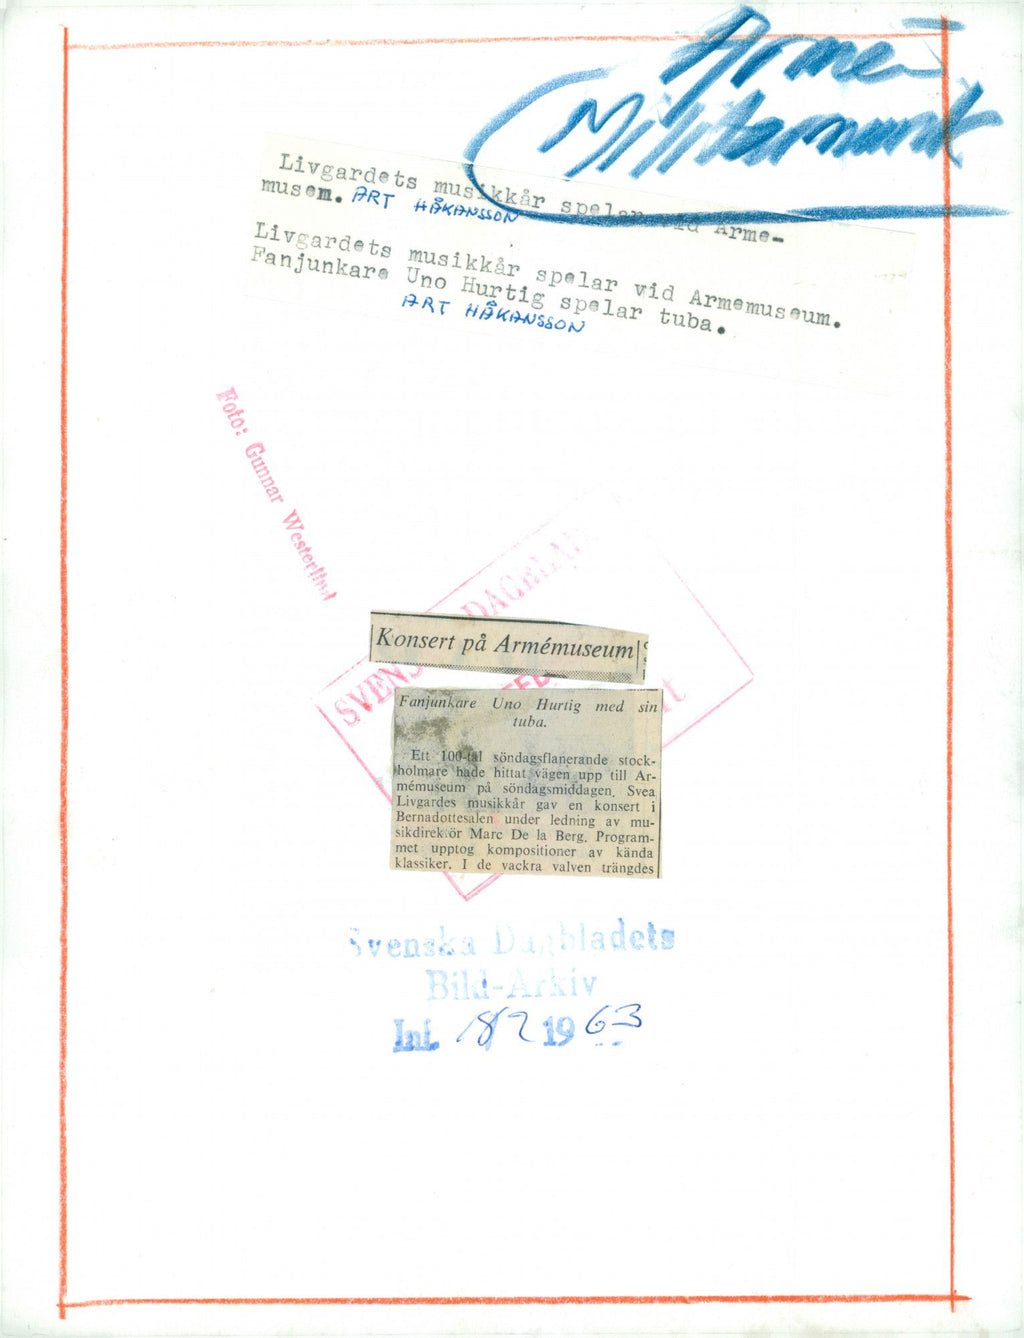 Armé-
Militärmusik
Livgardets musikkår spelar vid Arme-
musem. ART HÅKANSSON
Livgardets musikkår spelar vid Armemuseum.
Fanjunkare Uno Hurtig spelar tuba.
ART HÅKANSSON
Foto: Gunnar Westerlund
SVENSKA DAGBLADET
FEB
Konsert på Armémuseum
Fanjunkare Uno Hurtig med sin
tuba.
Ett 100-tal söndagsflanerande stock-
holmare hade hittat vägen upp till Ar-
mémuseum på söndagsmiddagen. Svea
Livgardes musikkår gav en konsert i
Bernadottesalen under ledning av mu-
sikdirektör Marc De la Berg. Program-
met upptog kompositioner av kända
klassiker. I de vackra valven trängdes
Svenska Dagbladets
Bild-Arkiv
Inl. 18/2 1963